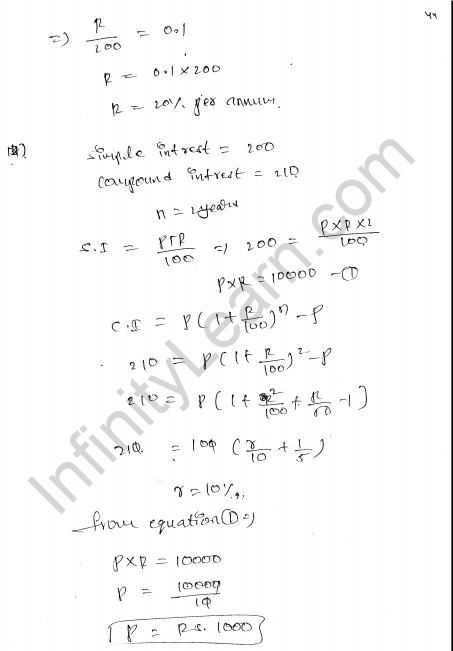 44
=) R/200 = 0.1
R = 0.1 x 200
R = 20% per annum.
simple intrest = 200
compound intrest = 210
n = 2 years
S.I = PTR/100 => 200 = PxRx2/100
PxR = 10000 - ①
C.I = P(1+R/100)^n - P
210 = P(1+R/100)^2 - P
210 = P(1+R^2/100+R/50-1)
210 = 100 (r/10 + 1/5)
r = 10%
from equation ① =)
PxR = 10000
P = 10000/10
P = Rs. 1000
InfinityLearn.com